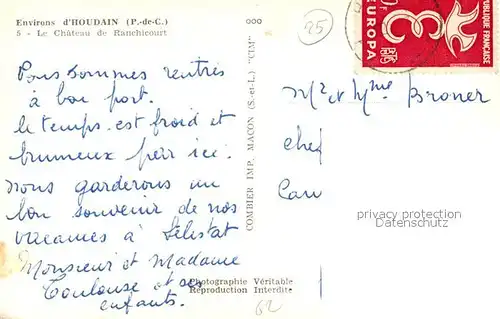 Environs d'HOUDAIN (P.-de-C.)
5 - Le Château de Ranchicourt
Nous sommes rentrés
à bon port.
le temps est froid et
brumeux par ici.
nous garderons un
bon souvenir de nos
vacances à Sélestat
Monsieur et Madame
Toulouse et ses
enfants.
Photographie Véritable
Reproduction Interdite
COMBIER IMP. MACON (S.-et-L.) "CIM"
25
RÉPUBLIQUE FRANÇAISE
EUROPA
Mr et Mme Broner
chef
Can
privacy protection
Datenschutz
62